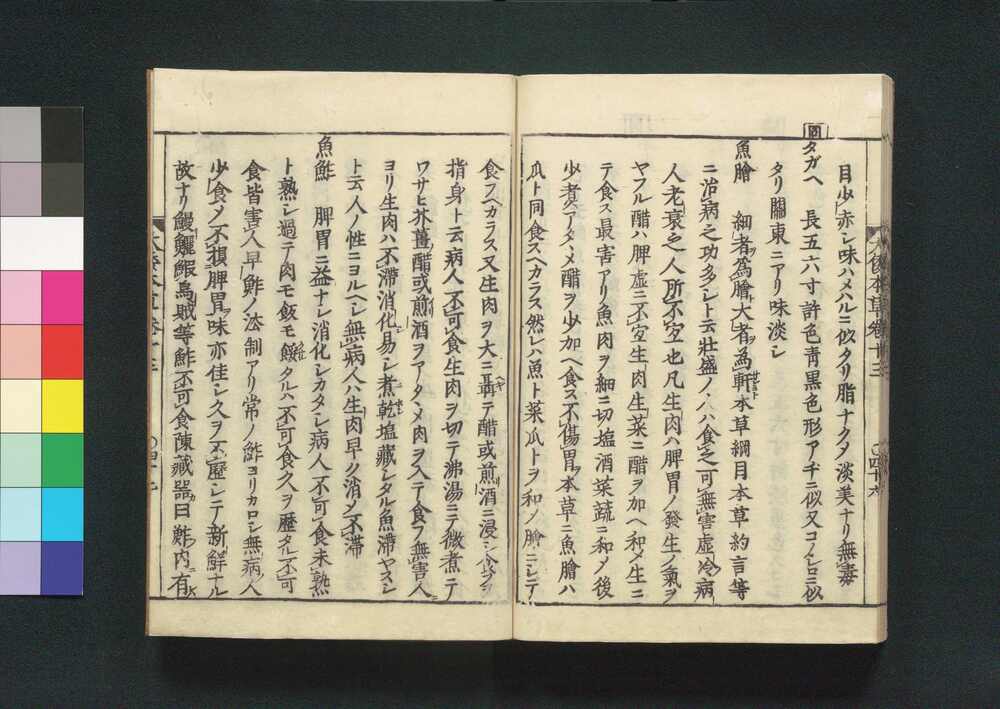 目少赤シ味ハメハルニ似タリ脂ナクメ淡美ナリ無毒
国 タカヘ 長五六寸許色青黒色形アチニ似又コノシロニ似
タリ關東ニアリ味淡シ
魚膾 細者ヲ為膾大者ヲ為軒本草綱目本草約言等
ニ治病之功多シト云壮盛ノ人ハ食之可無害虚冷病
人老衰之人所不宜也凡生肉ハ脾胃ノ發生ノ氣ヲ
ヤフル醋ハ脾虚ニ不宜生肉生菜ニ醋ヲ加ヘ和メ生ニ
テ食ス最害アリ魚肉ヲ細ニ切塩酒菜蔬ニ和メ後
少煮クアタヽメ醋ヲ少加ヘ食ス不傷胃本草ニ魚膾ハ
瓜ト同食スヘカラス然レハ魚ト菜瓜トヲ和ノ膾ニシテ
食フヘカラス又生肉ヲ大ニ聶テ醋或煎酒ニ浸シ食ヲ
指身ト云病人不可食生肉ヲ切テ沸湯ニテ微煮テ
ワサヒ芥薑醋或煎酒ヲアタヽメ肉ヲ入テ食フ無害人
ヨリ生肉ハ不滯消化易シ煮乾塩藏シタル魚滯ヤスシ
ト云人ノ性ニヨルヘシ無病人ハ生肉早ク消メ不滯
魚鮓 脾胃ニ益ナシ消化シカタシ病人不可食未熟
ト熟シ過テ肉モ飯モ餒タルハ不可食久ヲ歴タル不可
食皆害人早鮓ノ法制アリ常ノ鮓ヨリカロシ無病ノ人
少食メ不損脾胃味亦佳シ久ヲ不歴シテ新鮮ナル
故ナリ鰻鱺鰕烏賊等鮓不可食陳藏器曰鮓内有
大倭本草卷十三
〇四十六